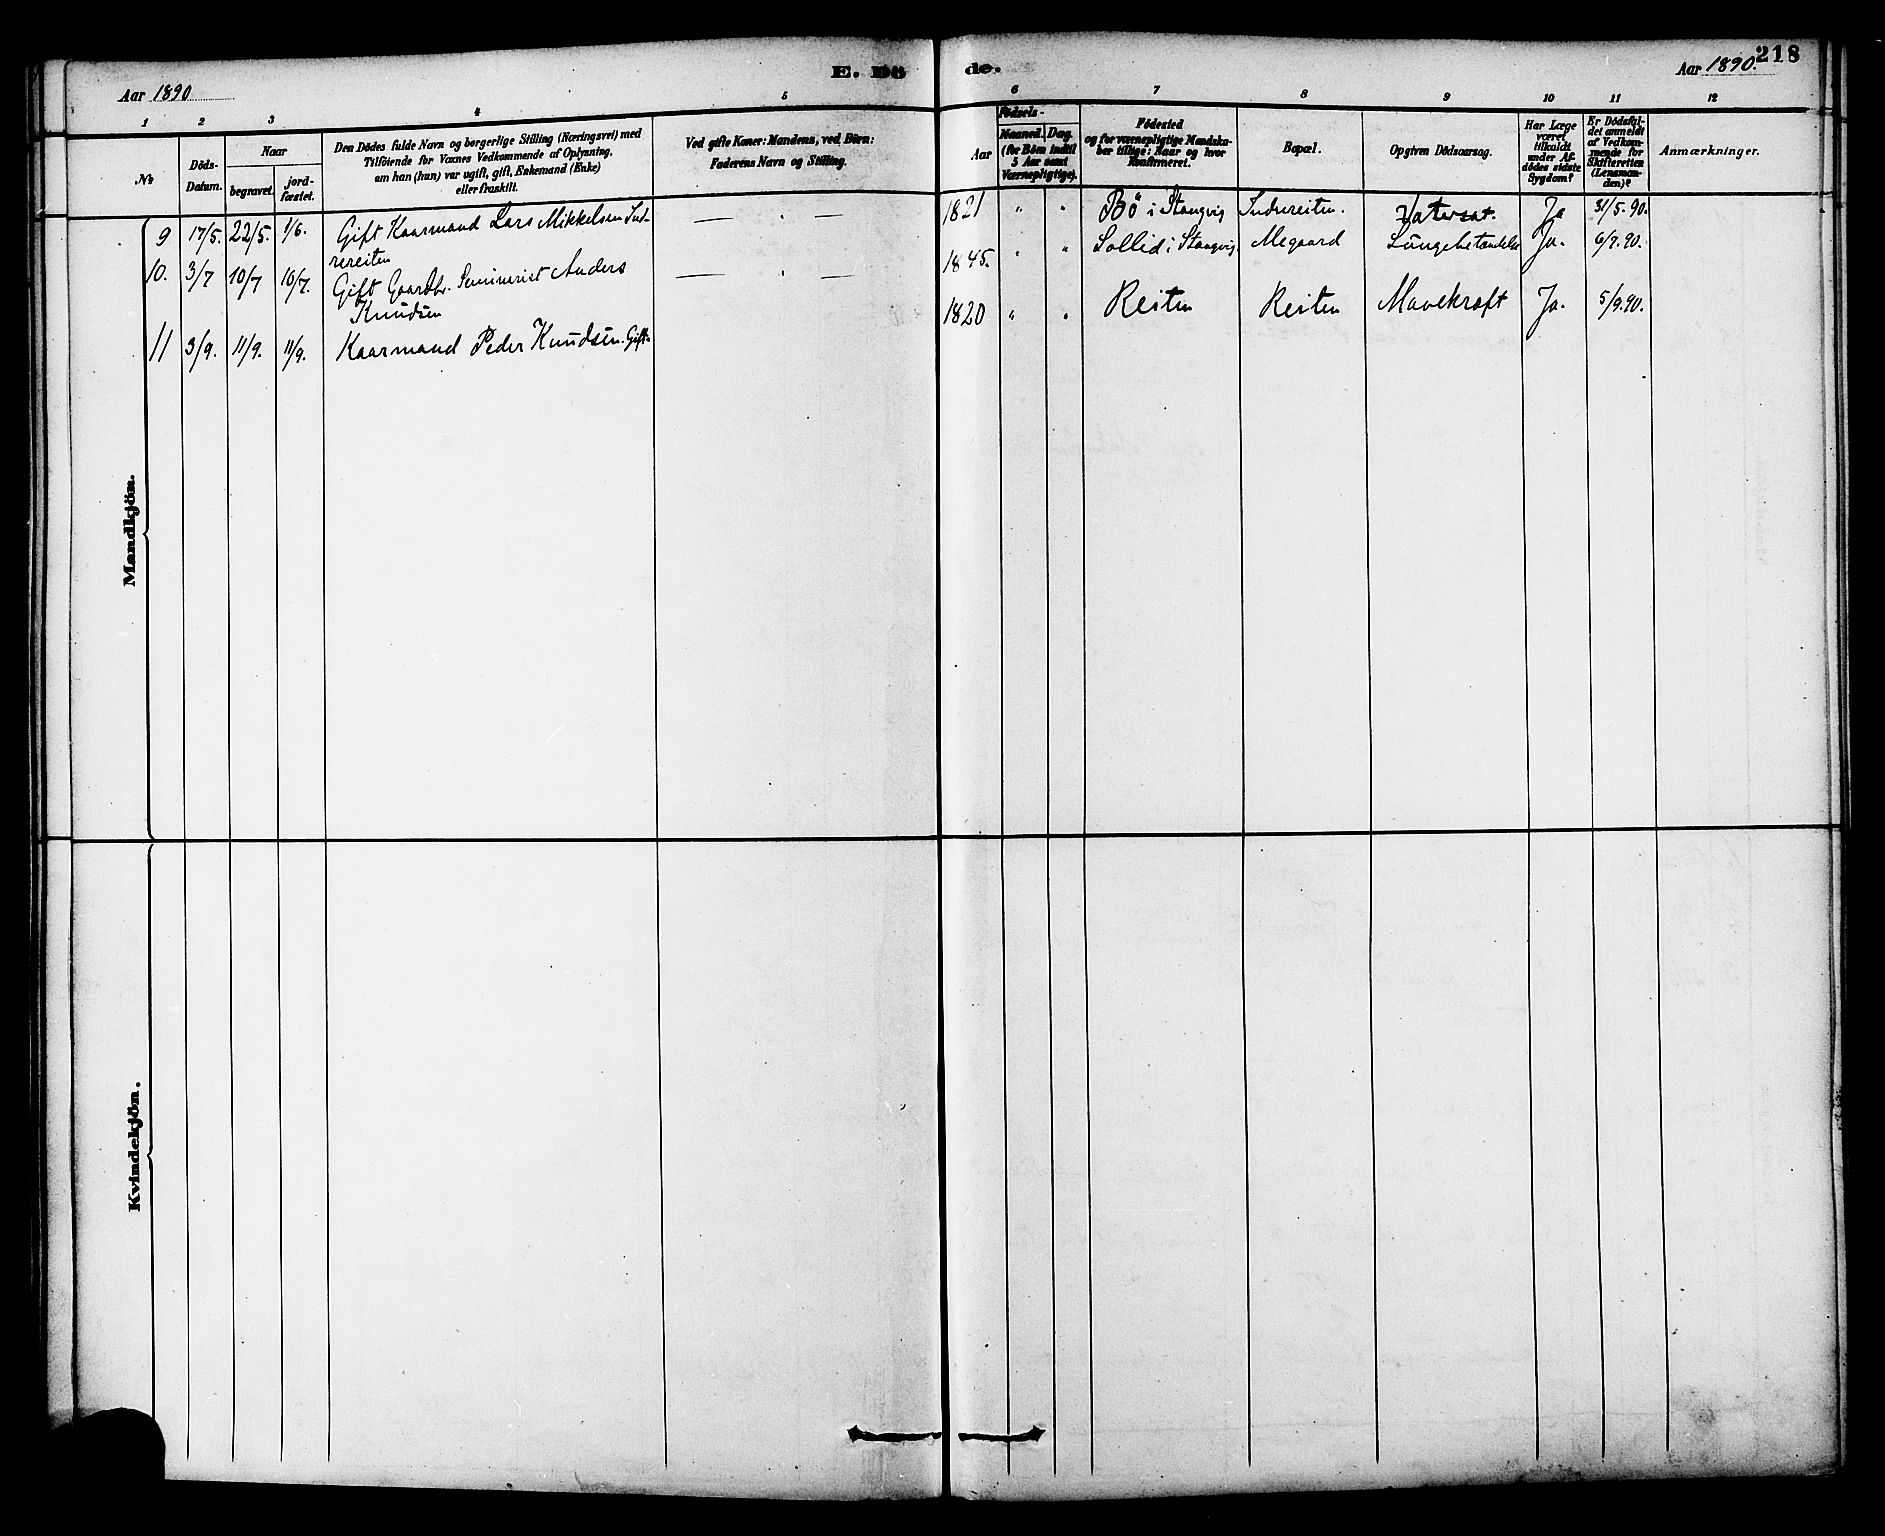 E. Dö de.
218
Aar 1890
Aar 1890.
1 2 3 4 5 6 7 8 9 10 11 12
Nr
Döds-
Datum.
Naar
begravet.
jord-
fæstet.
Den Dödes fulde Navn og borgerlige Stilling (Næringsvei) med
Tilföiende for Voxnes Vedkommende af Oplysning,
om han (hun) var ugift, gift, Enkemand (Enke)
eller fraskilt.
Ved gifte Koner: Mandens, ved Börn:
Faderens Navn og Stilling.
Födsels-
Aar
Maaned. Dag.
(for Börn indtil
5 Aar samt
Værnepligtige).
Födested
og for værnepligtige Mandska-
ber tillige: Naar og hvor
Konfirmeret.
Bopæl.
Opgiven Dödsaarsag.
Har Læge
været
tilkaldt
under Af-
dödes sidste
Sygdom?
Er Dödsfal-
det anmeldt
af Vedkom-
mende for
Skifteretten
(Lensman-
den)?
Anmærkninger.
Mandkjön.
9 17/5. 22/5. 1/6. Gift Kaarmand Lars Mikkelsen Ind-
rereiten
— " — 1821 " " Bö i Stangvig Indrereiten. Ja 31/5. 90.
10. 3/7 10/7 10/7. Gift Gaardbr. Seminarist Anders
Knudsen
— " — 1845. " " Sollid i Stangvig Megaard Lungebetændelse Ja. 6/7. 90.
11 3/9. 11/9. 11/9. Kaarmand Peder Knudsen. Gift.
1820 " " Reiten Reiten Mavekræft Ja. 5/9. 90.
Kvindekjön.